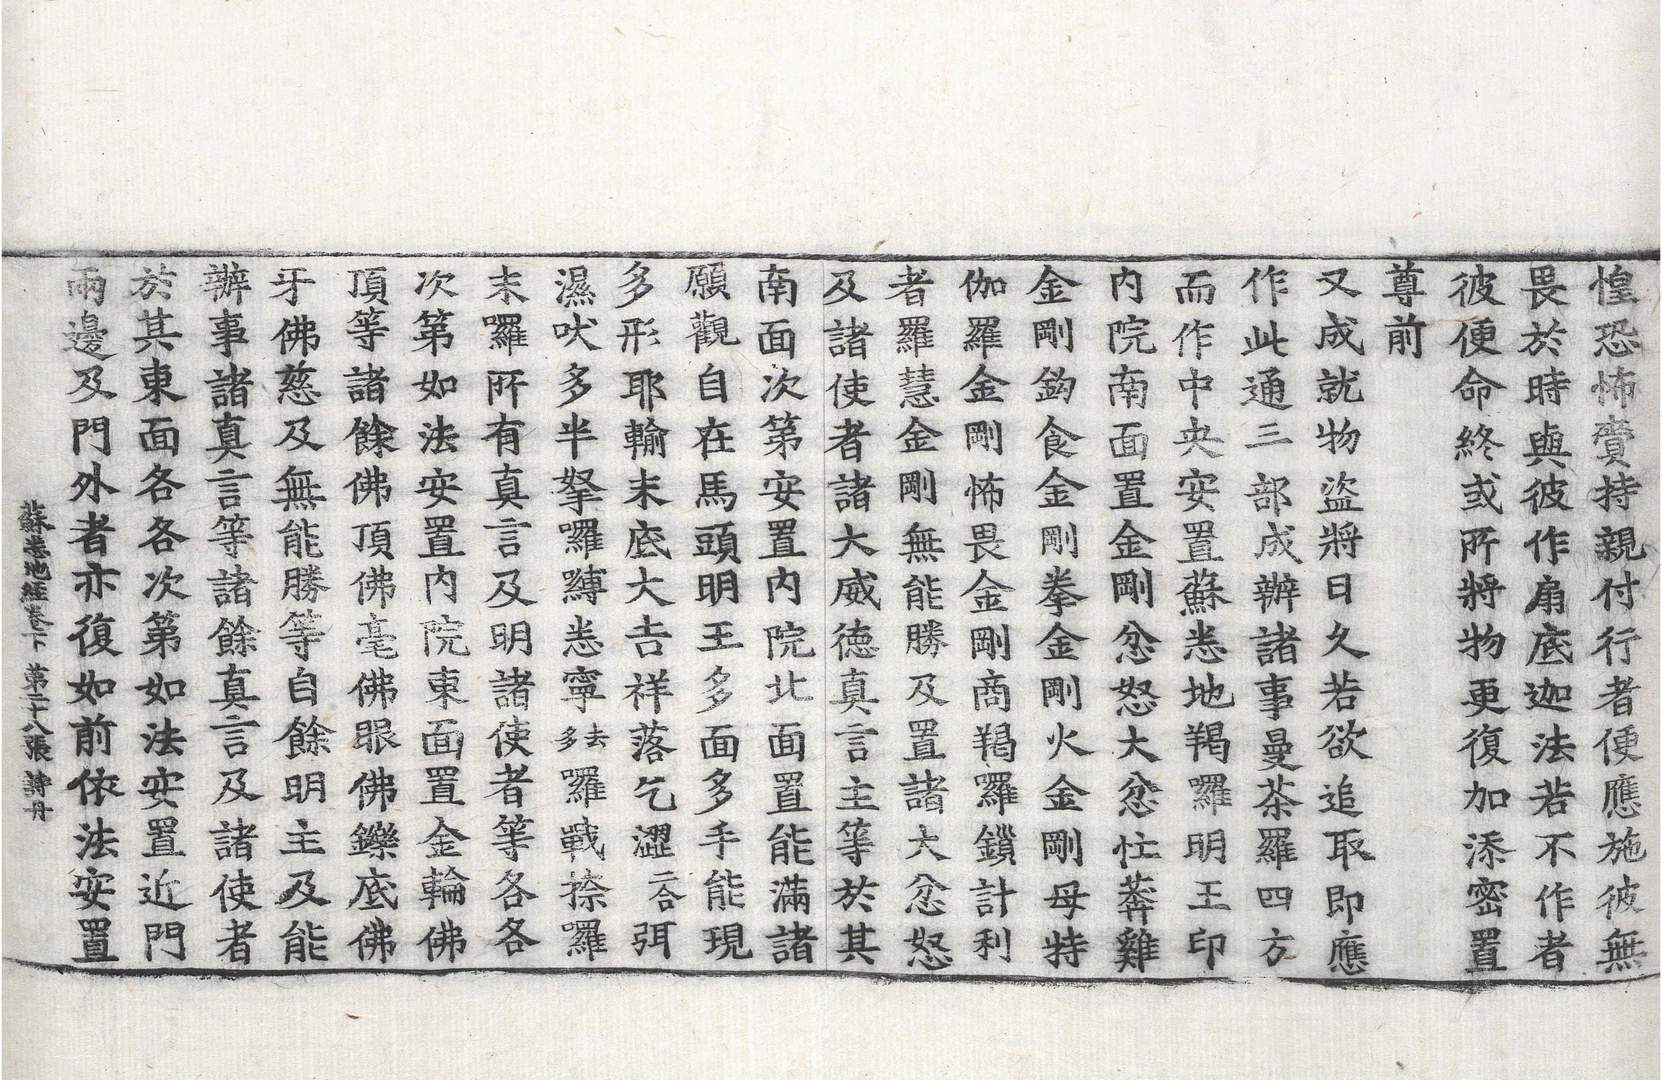 惶恐怖賷持親付行者便應施彼無
畏於時與彼作扇底迦法若不作者
彼便命終或所將物更復加添密置
尊前
又成就物盜將日久若欲追取即應
作此通三部成辦諸事曼荼羅四方
而作中央安置蘇悉地羯囉明王印
內院南面置金剛忿怒大忿忙莾雞
金剛鈎食金剛拳金剛火金剛母特
伽羅金剛怖畏金剛商羯囉鎖計利
者羅慧金剛無能勝及置諸大忿怒
及諸使者諸大威德真言主等於其
南面次第安置內院北面置能滿諸
願觀自在馬頭明王多面多手能現
多形耶輸末底大吉祥落乞澀二合弭
濕吠多半拏囉嚩悉寧去多囉戰捺囉
末囉所有真言及明諸使者等各各
次第如法安置內院東面置金輪佛
頂等諸餘佛頂佛毫佛眼佛鑠底佛
牙佛慈及無能勝等自餘明主及能
辦事諸真言等諸餘真言及諸使者
於其東面各各次第如法安置近門
兩邊及門外者亦復如前依法安置
蘇悉地經卷下 第二十八張 詩丹